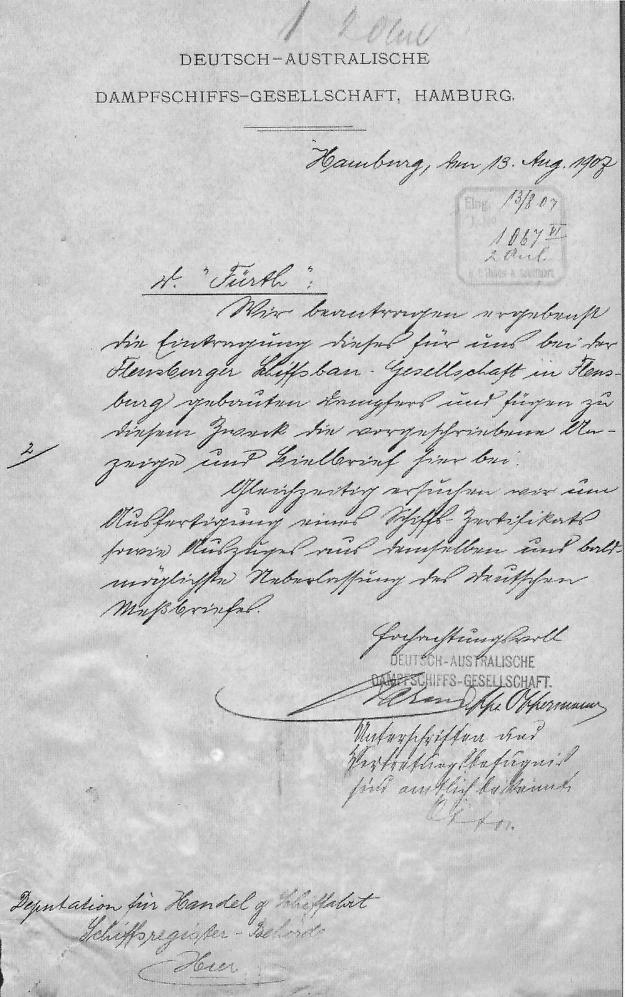 1 2 Anl
DEUTSCH-AUSTRALISCHE
DAMPFSCHIFFS-GESELLSCHAFT, HAMBURG.
Hamburg, den 13. Aug. 1907
Eing. 13/8 07
J. No
1067 VI
2 Anl.
d. "Fürth":
Wir beantragen ergebenst
die Eintragung dieses für uns bei der
Flensburger Schiffsbau-Gesellschaft in Flens-
burg gebauten Dampfers und fügen zu
diesem Zweck die vorgeschriebene An-
2/
zeige und Bielbrief hier bei.
Gleichzeitig ersuchen wir um
Ausfertigung eines Schiffs-Zertifikats
sowie Auszuges aus demselben und bald-
möglichste Ueberlassung des deutschen
Meßbriefes.
Hochachtungsvoll
DEUTSCH-AUSTRALISCHE
DAMPFSCHIFFS-GESELLSCHAFT.
ppa Oppermann
Unterschriften und
Vertretungsbefugnis
sind amtlich bekannt.
Deputation für Handel & Schiffahrt
Schiffsregister-Behörde
Hier